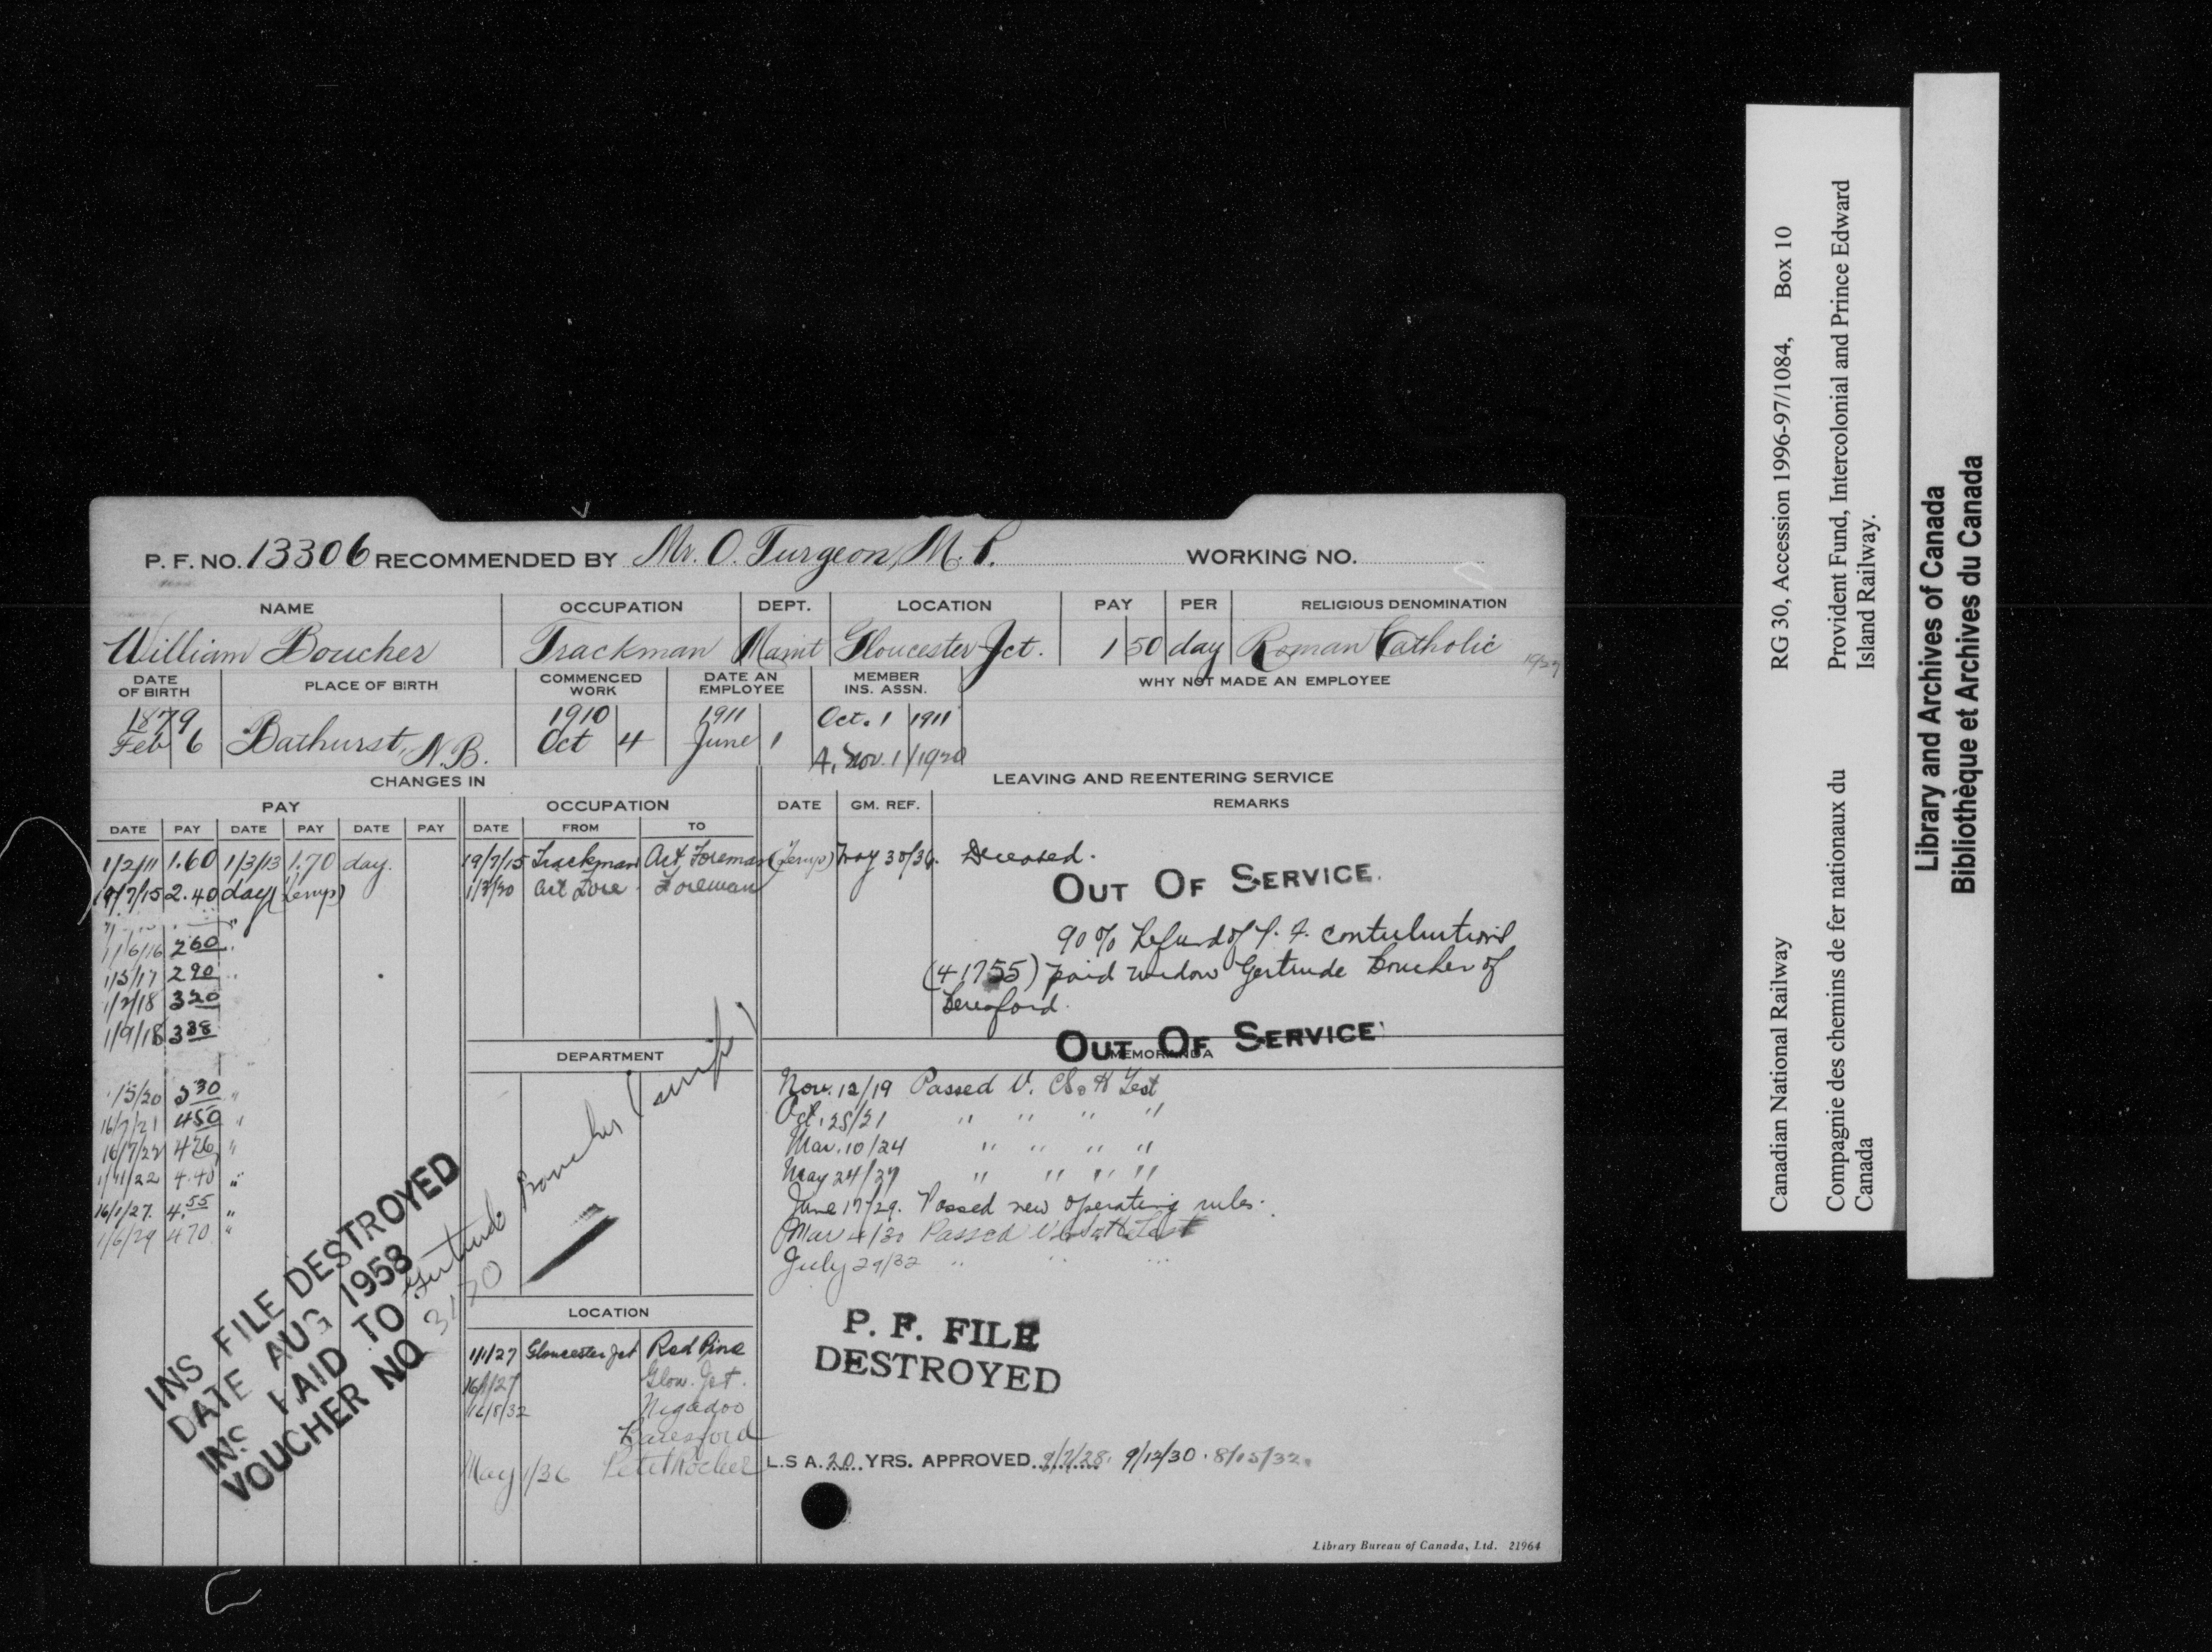 P. F. NO. 13306 RECOMMENDED BY Mr. O. Turgeon, M. P. WORKING NO.
NAME OCCUPATION DEPT. LOCATION PAY PER RELIGIOUS DENOMINATION
William Boucher Trackman Maint Gloucester Jct. 1 50 day Roman Catholic
DATE OF BIRTH PLACE OF BIRTH COMMENCED WORK DATE AN EMPLOYEE MEMBER INS. ASSN. WHY NOT MADE AN EMPLOYEE
1879 1910 1911 Oct. 1 1911
Feb 6 Bathurst, N.B. Oct 4 June 1
A. Nov. 1/1920
CHANGES IN LEAVING AND REENTERING SERVICE
PAY OCCUPATION DATE GM. REF. REMARKS
DATE PAY DATE PAY DATE PAY DATE FROM TO
1/2/11 1.60 1/3/13 1.70 day. 19/7/15 Trackman Act. Foreman (Temp) May 30/36. Deceased.
19/7/15 2.40 day (temp) Act Fore Foreman
OUT OF SERVICE.
1/6/16 260
1/5/17 290
1/2/18 320
1/9/18 338
90% Refund of P. F. contributions
(41755) paid widow Gertrude Boucher of
Beresford.
OUT OF SERVICE
DEPARTMENT MEMORANDA
1/5/20 530 "
16/7/21 450 "
16/7/22 426 "
1/11/22 4.40 "
16/1/27. 4.55 "
1/6/29 470 "
Nov. 12/19 Passed V. CS. & H Test
Oct. 25/21 " " " "
Mar. 10/24 " " " "
May 24/27 " " " "
June 17/29. Passed new operating rules.
Mar 4/30 Passed Test
July 29/32 " " "
INS FILE DESTROYED
DATE AUG 1958
INS PAID TO Gertrude Boucher (wife)
VOUCHER NO 3170
LOCATION
1/1/27 Gloucester Jct Red Pine
16/1/27 Glou. Jct.
16/8/32 Nigadoo
Beresford
May 1/36 Petit Rocher
P. F. FILE
DESTROYED
L.S A. 20 YRS. APPROVED 9/7/28. 9/12/30. 8/15/32.
Library Bureau of Canada, Ltd. 21964
Canadian National Railway RG 30, Accession 1996-97/1084, Box 10
Compagnie des chemins de fer nationaux du Provident Fund, Intercolonial and Prince Edward
Canada Island Railway.
Library and Archives of Canada
Bibliothèque et Archives du Canada